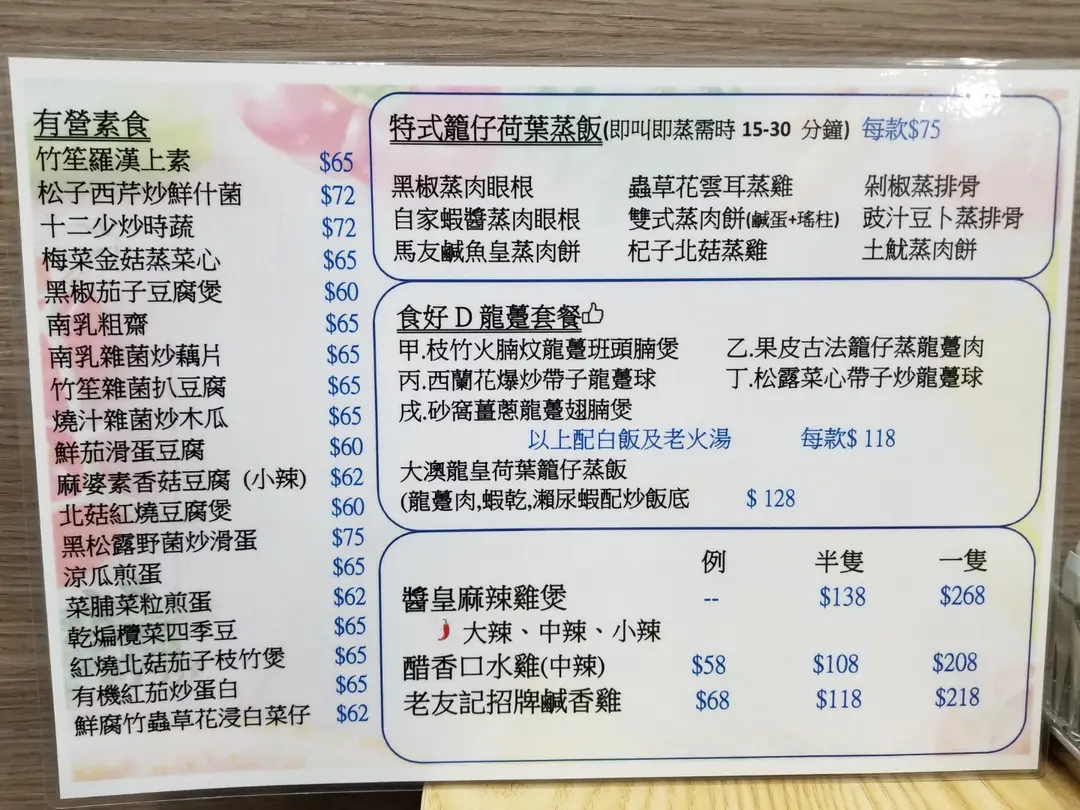 有營素食
竹笙羅漢上素 $65
松子西芹炒鮮什菌 $72
十二少炒時蔬 $72
梅菜金菇蒸菜心 $65
黑椒茄子豆腐煲 $60
南乳粗齋 $65
南乳雜菌炒藕片 $65
竹笙雜菌扒豆腐 $65
燒汁雜菌炒木瓜 $65
鮮茄滑蛋豆腐 $60
麻婆素香菇豆腐 (小辣) $62
北菇紅燒豆腐煲 $60
黑松露野菌炒滑蛋 $75
涼瓜煎蛋 $65
菜脯菜粒煎蛋 $62
乾煸欖菜四季豆 $65
紅燒北菇茄子枝竹煲 $65
有機紅茄炒蛋白 $65
鮮腐竹蟲草花浸白菜仔 $62
特式籠仔荷葉蒸飯(即叫即蒸需時 15-30 分鐘) 每款$75
黑椒蒸肉眼根 蟲草花雲耳蒸雞 剁椒蒸排骨
自家蝦醬蒸肉眼根 雙式蒸肉餅(鹹蛋+瑤柱) 豉汁豆卜蒸排骨
馬友鹹魚皇蒸肉餅 杞子北菇蒸雞 土魷蒸肉餅
食好 D 龍躉套餐
甲.枝竹火腩炆龍躉班頭腩煲 乙.果皮古法籠仔蒸龍躉肉
丙.西蘭花爆炒帶子龍躉球 丁.松露菜心帶子炒龍躉球
戌.砂窩薑蔥龍躉翅腩煲
以上配白飯及老火湯 每款$ 118
大澳龍皇荷葉籠仔蒸飯
(龍躉肉,蝦乾,瀨尿蝦配炒飯底 $ 128
例 半隻 一隻
醬皇麻辣雞煲 -- $138 $268
大辣、中辣、小辣
醋香口水雞(中辣) $58 $108 $208
老友記招牌鹹香雞 $68 $118 $218